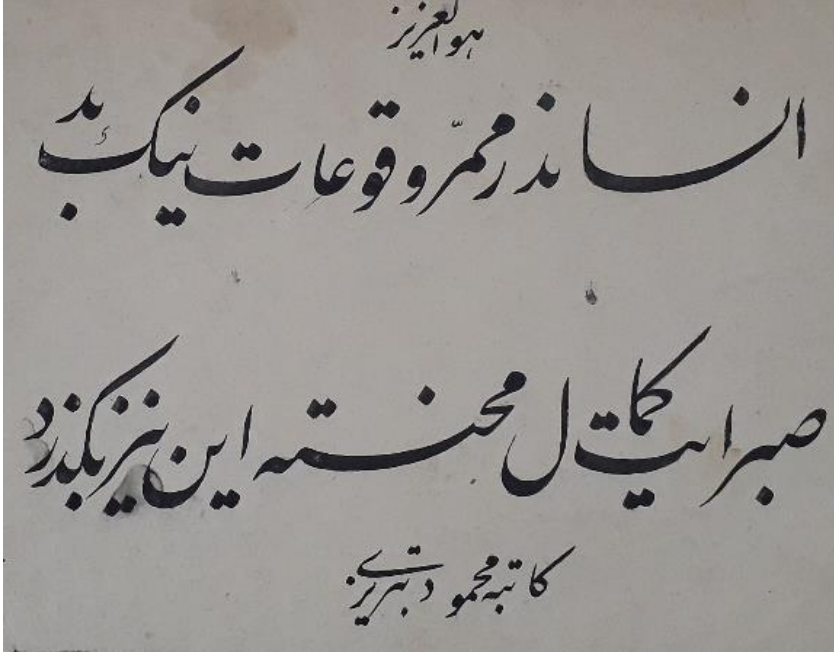 هو العزيز
انساندر ممرّ وقوعات نیکئ بد
صبر ایت کمال محنته این نیز بگذرد
کاتبه محمود تبریزی